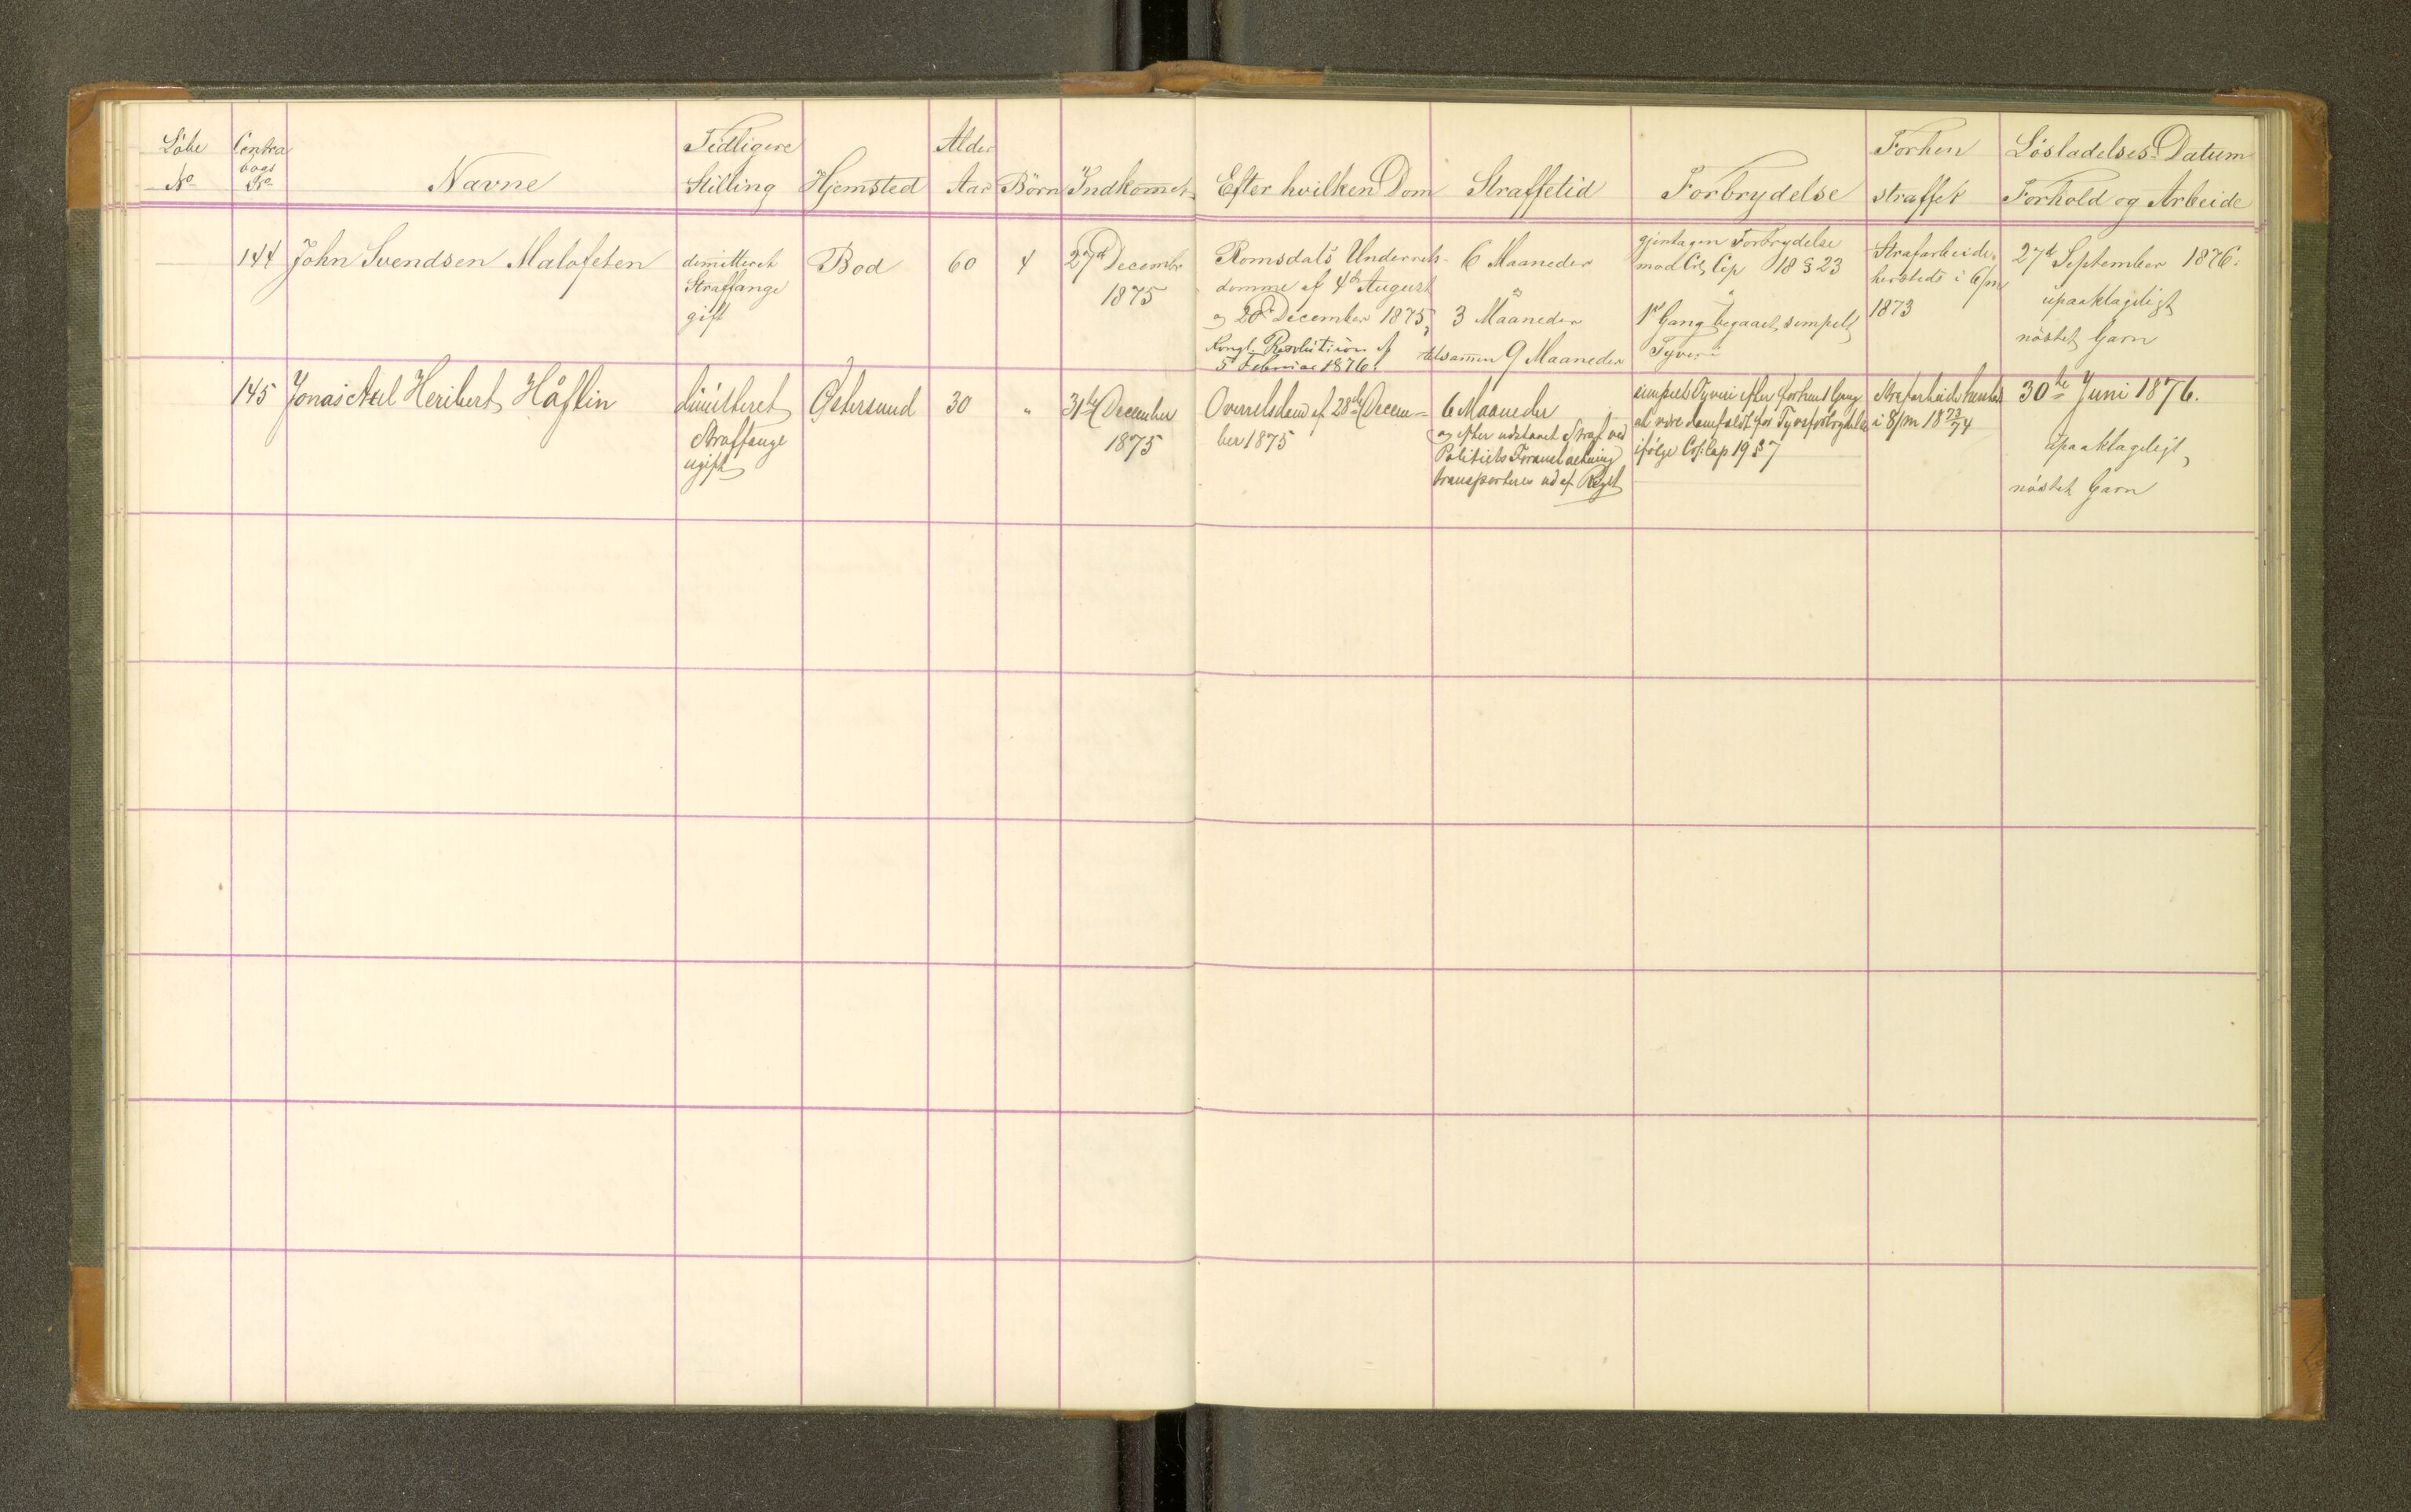 Löbe
No
Contra
bogs
No
Navne
Tidligere
Stilling
Hjemsted
Alder
Aar
Börn
Indkommet
Efter hvilken Dom
Straffetid
Forbrydelse
Forhen
straffet
Lösladelses-Datum
Forhold og Arbeide
144
John Svendsen Malofeten
dimitteret
Straffange
gift
Bod
60
4
27de Decembr
1875
Romsdals Underrets-
domme af 4de August
og 20de December 1875,
Kongl. Resolution af
5 Februar 1876.
6 Maaneder
"
3 Maaneder
tilsammen 9 Maaneder
gjentagen Forbrydelse
mod Cr. Cap 18 § 23
"
1ste Gang begaaet simpelt
Tyveri
Strafarbeide
hersteds i 6/m
1873
27de September 1876.
upaaklageligt
nöstet Garn
145
Jonas Axel Heribert Håflin
dimitteret
Straffange
ugift
Östersund
30
"
31te December
1875
Overretsdom af 28de Decem-
ber 1875
6 Maaneder
og efter udstaaet Straf ved
Politiets Foranstaltning
transporteres ud af Riget
simpelt Tyveri efter forhen 1 Gang
at være domfældt for Tyvsforbrydelse
ifølge Cr: Cap 19 § 7
Strafarbeide
i 8/m 1873/74
30te Juni 1876.
upaaklageligt,
nöstet Garn